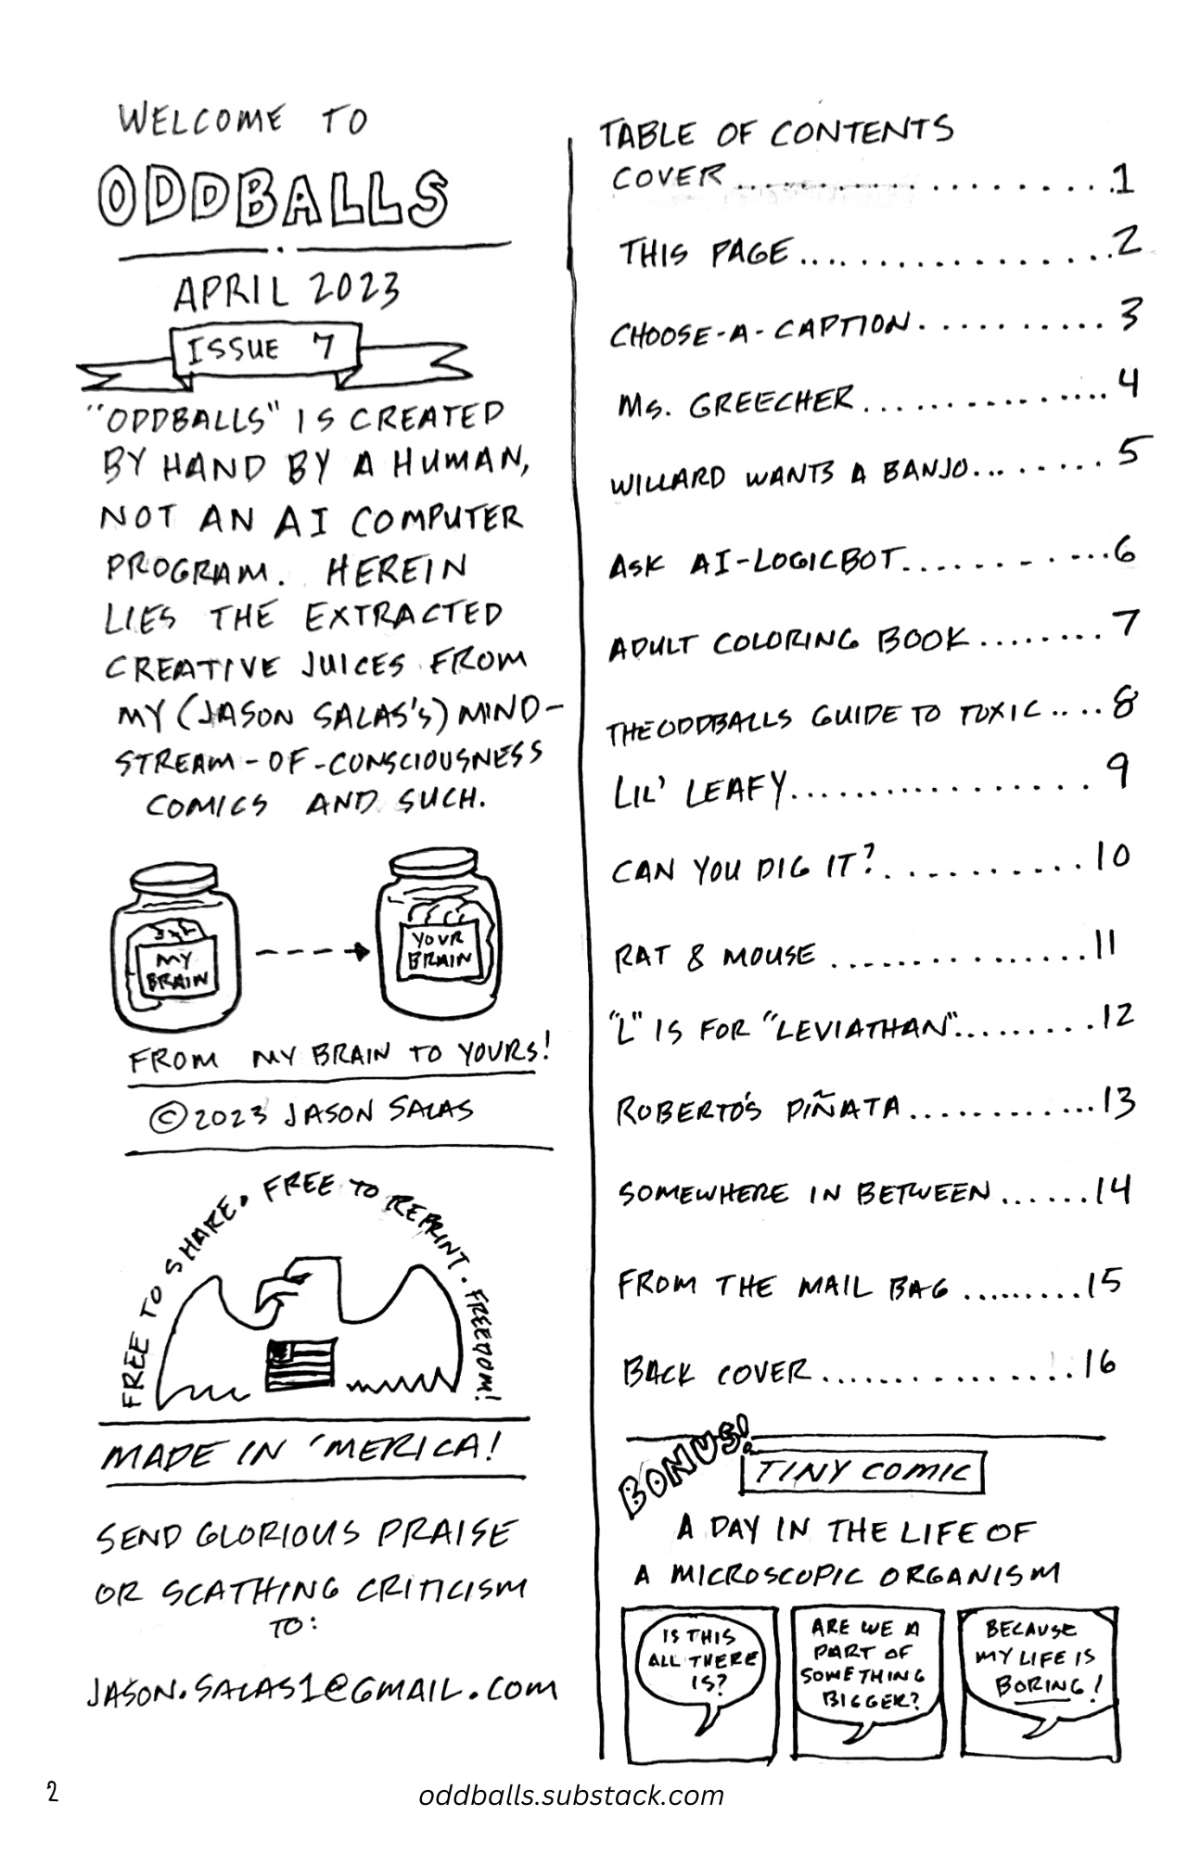 WELCOME TO
ODDBALLS
APRIL 2023
ISSUE 7
"ODDBALLS" IS CREATED
BY HAND BY A HUMAN,
NOT AN AI COMPUTER
PROGRAM. HEREIN
LIES THE EXTRACTED
CREATIVE JUICES FROM
MY (JASON SALAS'S) MIND-
STREAM-OF-CONSCIOUSNESS
COMICS AND SUCH.
MY
BRAIN
YOUR
BRAIN
FROM MY BRAIN TO YOURS!
©2023 JASON SALAS
FREE TO SHARE. FREE TO REPRINT. FREEDOM!
MADE IN 'MERICA!
SEND GLORIOUS PRAISE
OR SCATHING CRITICISM
TO:
JASON.SALAS1@GMAIL.COM
TABLE OF CONTENTS
COVER....................1
THIS PAGE.................2
CHOOSE-A-CAPTION..........3
MS. GREECHER..............4
WILLARD WANTS A BANJO........5
ASK AI-LOGICBOT...........6
ADULT COLORING BOOK........7
THE ODDBALLS GUIDE TO TOXIC....8
LIL' LEAFY.................9
CAN YOU DIG IT?...........10
RAT & MOUSE ...............11
"L" IS FOR "LEVIATHAN".........12
ROBERTO'S PIÑATA............13
SOMEWHERE IN BETWEEN......14
FROM THE MAIL BAG .........15
BACK COVER................16
BONUS!
TINY COMIC
A DAY IN THE LIFE OF
A MICROSCOPIC ORGANISM
IS THIS
ALL THERE
IS?
ARE WE A
PART OF
SOMETHING
BIGGER?
BECAUSE
MY LIFE IS
BORING!
2
oddballs.substack.com